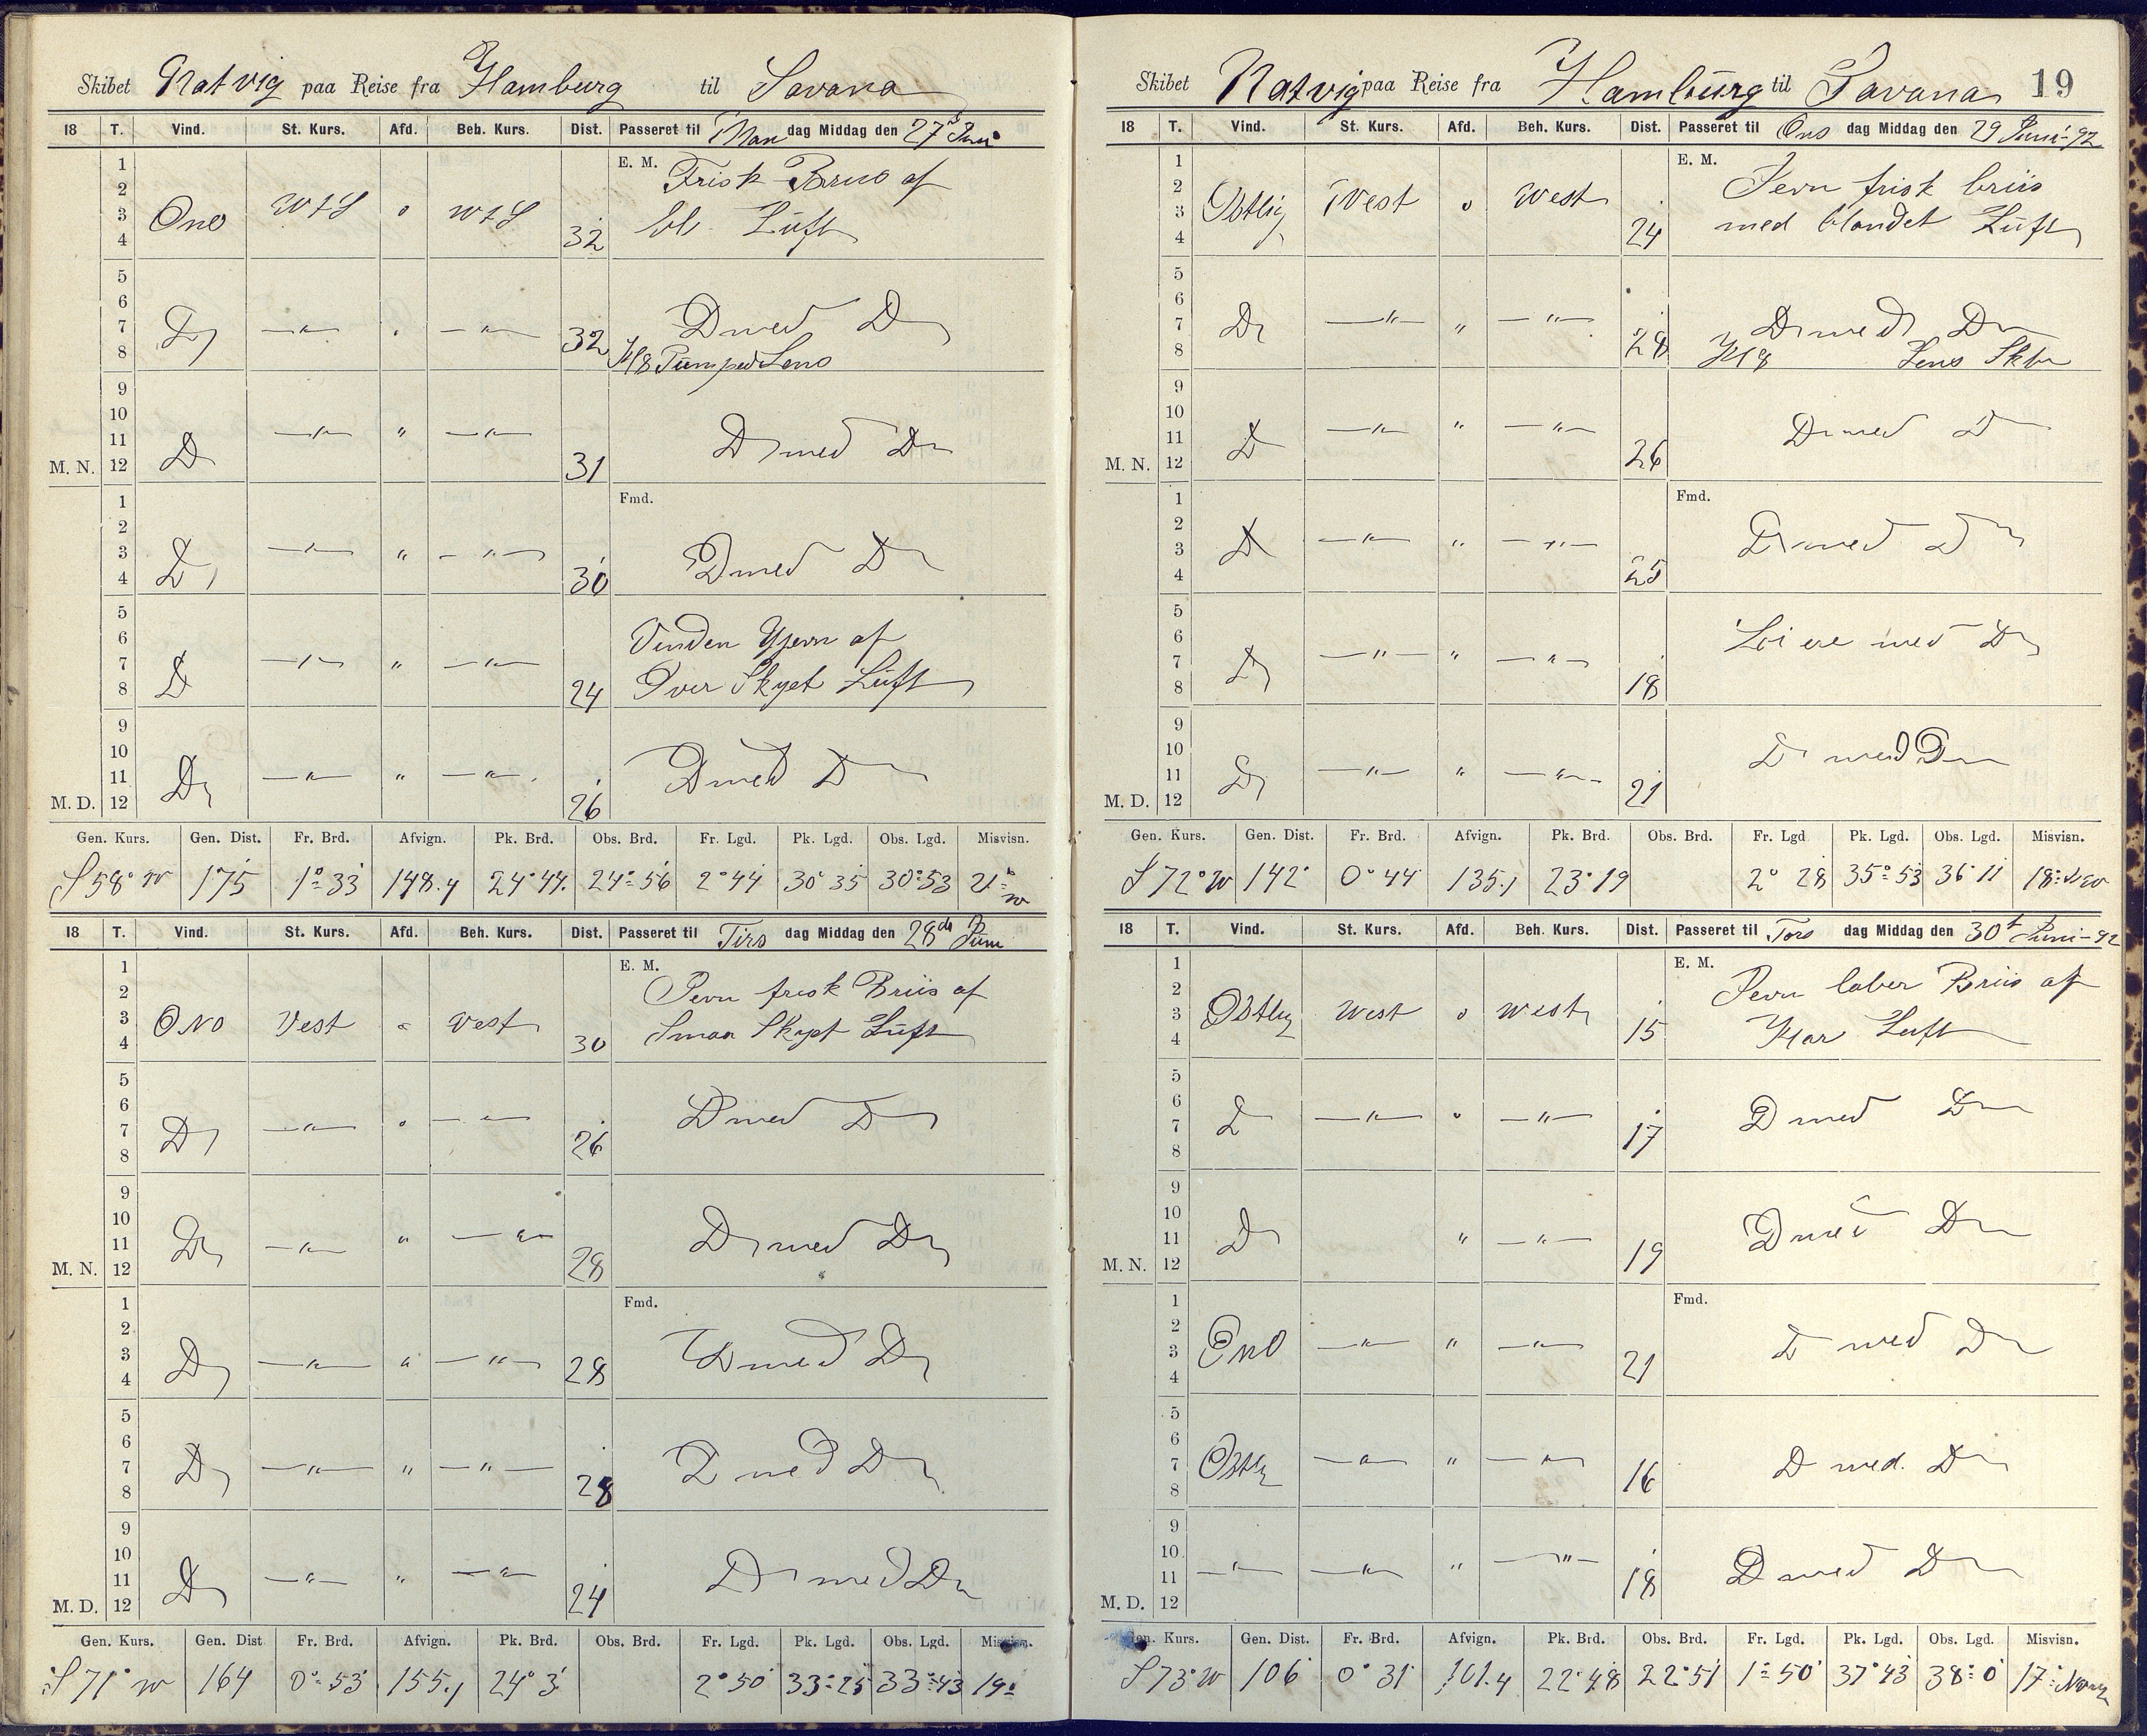 Skibet Natvig paa Reise fra Hamburg til Savana
18 T. Vind. St. Kurs. Afd. Beh. Kurs. Dist. Passeret til Man dag Middag den 27de Juni
1 E. M. Frisk Briis af
2
3 Ono WtS o WtS bl. Luft
4 32
5
6
7 D — " — " — " — Do med Do
8 32 Kl 8 Pumped Lens
9
10
11 D — " — " — " — Do med Do
M. N. 12 31
1 Fmd.
2
3 D — " — " — " — Do med Do
4 30
5
6 Vinden Ujevn af
7 D — " — " — " —
8 24 Over Skyet Luft
9
10
11 Do — " — " — " — Do med Do
M. D. 12 26
Gen. Kurs. Gen. Dist. Fr. Brd. Afvign. Pk. Brd. Obs. Brd. Fr. Lgd. Pk. Lgd. Obs. Lgd. Misvisn.
S 58° W 175 1° 33 148.4 24° 44 24° 56 2° 44 30° 35 30° 53 21° W
18 T. Vind. St. Kurs. Afd. Beh. Kurs. Dist. Passeret til Tirs dag Middag den 28de Juni
1 E. M. Jevn frisk Briis af
2
3 ONO Vest o Vest Smaa Skyet Luft
4 30
5
6
7 Do — " — " — " — Do med Do
8 26
9
10
11 Do — " — " — " — Do med Do
M. N. 12 28
1 Fmd.
2
3 Do — " — " — " — Do med Do
4 28
5
6
7 Do — " — " — " — Do med Do
8 28
9
10
11 Do — " — " — " — Do med Do
M. D. 12 24
Gen. Kurs. Gen. Dist Fr. Brd. Afvign. Pk. Brd. Obs. Brd. Fr. Lgd. Pk. Lgd. Obs. Lgd. Misvisn.
S 71° W 164 0° 53 155.1 24° 3 2° 50 33° 25 33° 43 19°
Skibet Natvig paa Reise fra Hamburg til Savana 19
18 T. Vind. St. Kurs. Afd. Beh. Kurs. Dist. Passeret til Ons dag Middag den 29 Juni-92
1 E. M. Jevn frisk briis
2
3 Østlig West o West med blandet Luft
4 24
5
6
7 Do — " — " — " — Do med Do
8 28 Kl 8 Lens Skib
9
10
11 D — " — " — " — Do med Do
M. N. 12 26
1 Fmd.
2
3 D — " — " — " — Do med Do
4 25
5
6 Løiere med Do
7 D — " — " — " —
8 18
9
10 Do med Do
11 D — " — " — " —
M. D. 12 21
Gen. Kurs. Gen. Dist. Fr. Brd. Afvign. Pk. Brd. Obs. Brd. Fr. Lgd Pk. Lgd. Obs. Lgd. Misvisn.
S 72° W 142 0° 44 135.1 23° 19 2° 28 35° 53 36° 11 18°
18 T. Vind. St. Kurs. Afd. Beh. Kurs. Dist. Passeret til Tors dag Middag den 30t Juni-92
1 E. M. Jevn laber Briis af
2
3 Østlig West o West Klar Luft
4 15
5
6
7 D — " — o — " — Do med Do
8 17
9
10
11 D " — " — Do med Do
M. N. 12 19
1 Fmd.
2
3 Eno — " — " — " — D med Do
4 21
5
6
7 Østlig — " — " — " — D med. Do
8 16
9
10
11 — " — — " — " — " — Do med Do
M. D. 12 18
Gen. Kurs. Gen. Dist. Fr. Brd. Afvign. Pk. Brd. Obs. Brd. Fr. Lgd. Pk. Lgd. Obs. Lgd. Misvisn.
S 73° W 106 0° 31 101.4 22° 48 22° 51 1° 50 37° 43 38° 0 17°